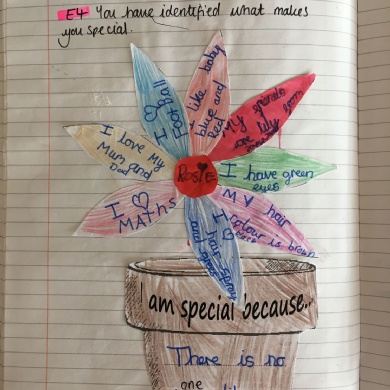 E4 You have identified what makes
you special.
I ♡
Foot
ball
I like baby
blue and
Red
My
are lily
I love my
Mum and
Dad
ROSIE
I have green
eyes
I ♡
MATHS
MY hair
colour is brown
I ♡
hair spray
and
I am special because...
There is no
one